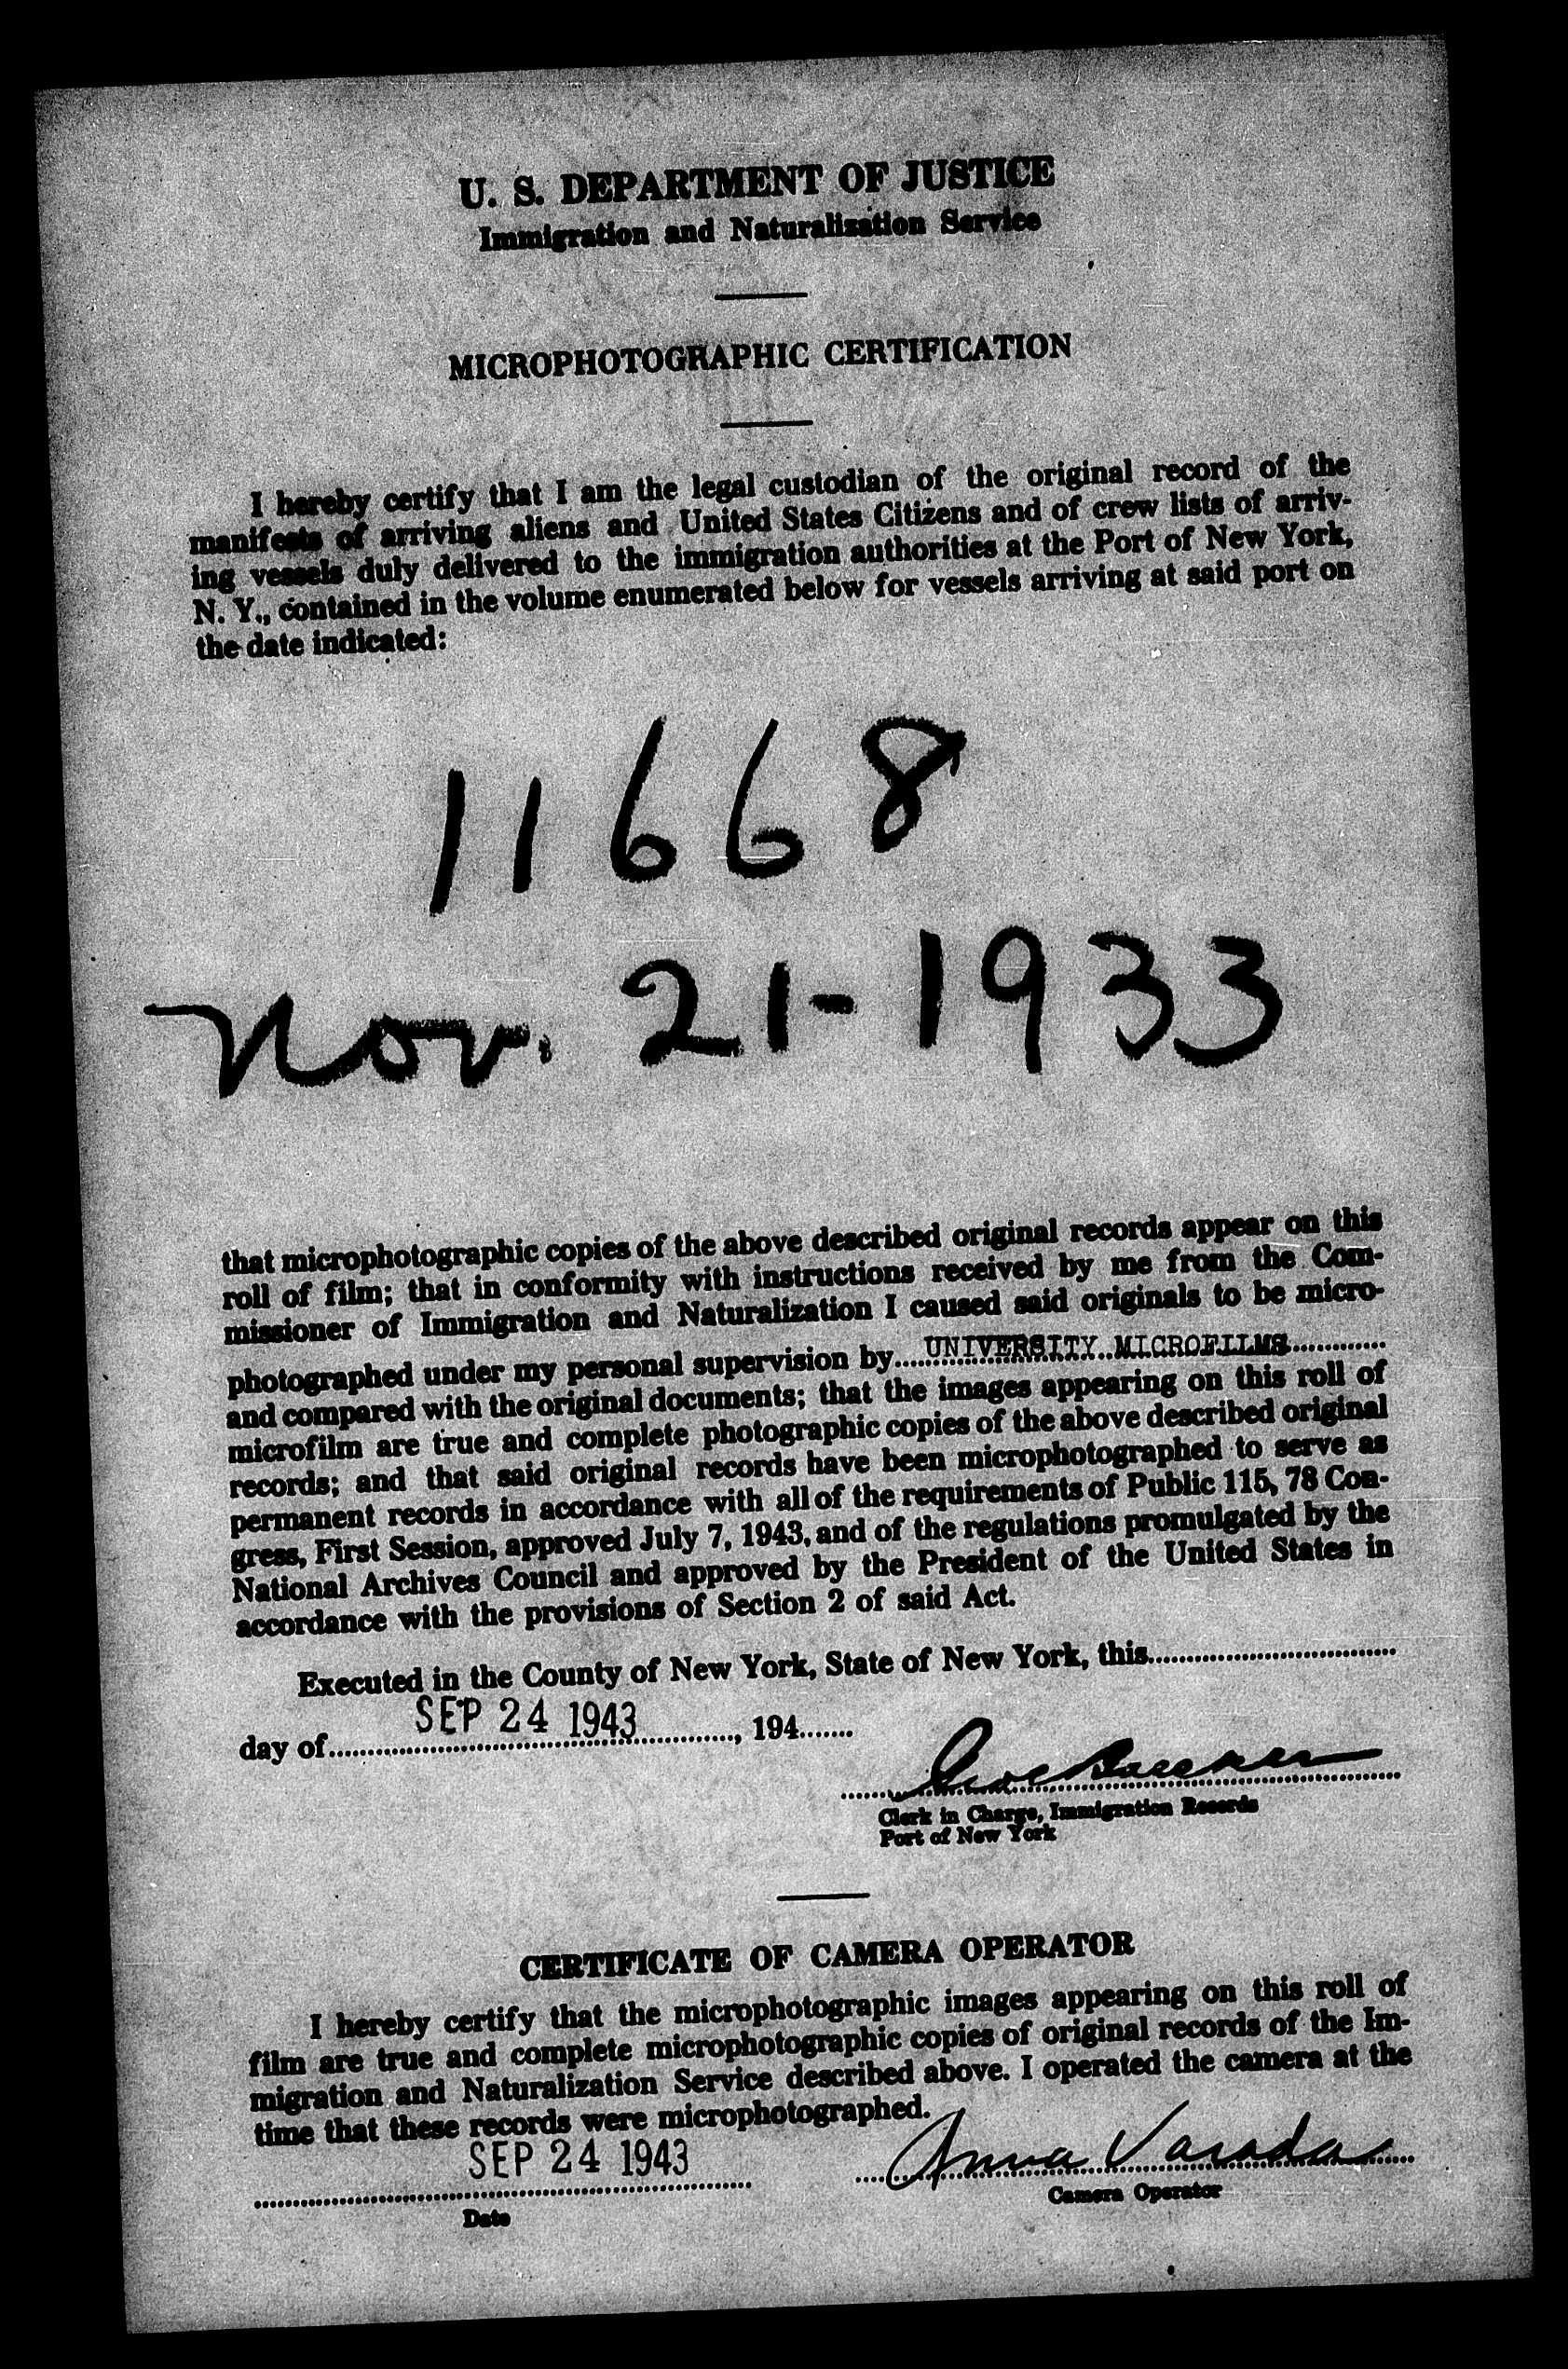 U. S. DEPARTMENT OF JUSTICE
Immigration and Naturalization Service
MICROPHOTOGRAPHIC CERTIFICATION
I hereby certify that I am the legal custodian of the original record of the
manifests of arriving aliens and United States Citizens and of crew lists of arriv-
ing vessels duly delivered to the immigration authorities at the Port of New York,
N. Y., contained in the volume enumerated below for vessels arriving at said port on
the date indicated:
11668
Nov. 21-1933
that microphotographic copies of the above described original records appear on this
roll of film; that in conformity with instructions received by me from the Com-
missioner of Immigration and Naturalization I caused said originals to be micro-
photographed under my personal supervision by UNIVERSITY MICROFILMS
and compared with the original documents; that the images appearing on this roll of
microfilm are true and complete photographic copies of the above described original
records; and that said original records have been microphotographed to serve as
permanent records in accordance with all of the requirements of Public 115, 78 Con-
gress, First Session, approved July 7, 1943, and of the regulations promulgated by the
National Archives Council and approved by the President of the United States in
accordance with the provisions of Section 2 of said Act.
Executed in the County of New York, State of New York, this
day of SEP 24 1943, 194
Clerk in Charge, Immigration Records
Port of New York
CERTIFICATE OF CAMERA OPERATOR
I hereby certify that the microphotographic images appearing on this roll of
film are true and complete microphotographic copies of original records of the Im-
migration and Naturalization Service described above. I operated the camera at the
time that these records were microphotographed.
SEP 24 1943
Anna
Date
Camera Operator